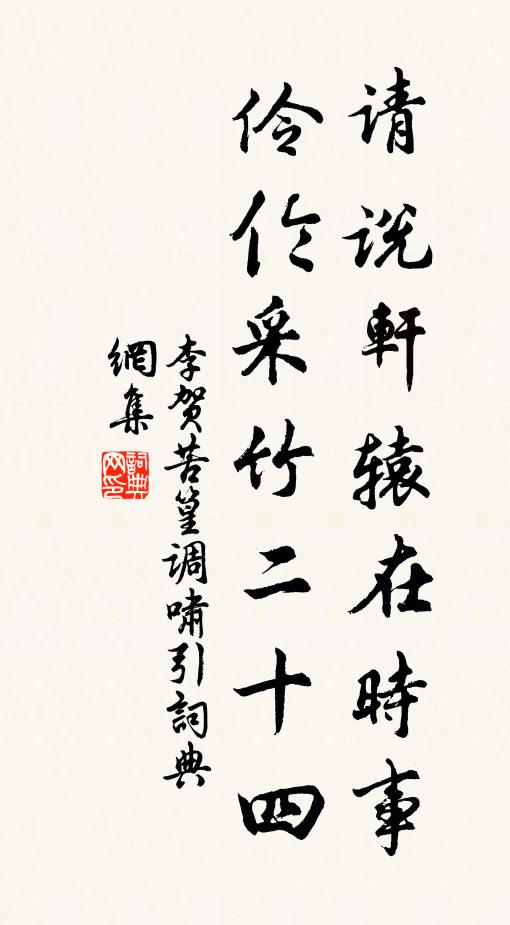 请说軒辕在時事
伶伦采竹二十四
李贺苦篁調嘯引詞典
網集
詞典
网印